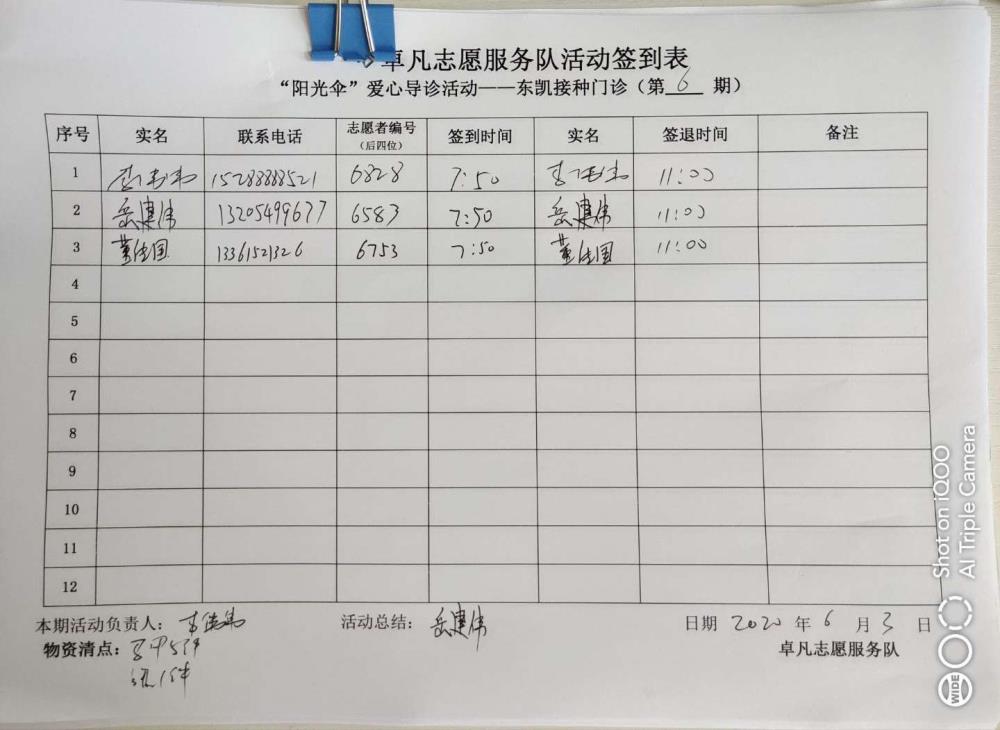 卓凡志愿服务队活动签到表
“阳光伞”爱心导诊活动——东凯接种门诊（第 6 期）
序号 实名 联系电话 志愿者编号（后四位） 签到时间 实名 签退时间 备注
1 15288888521 6828 7:50 11:00
2 岳建伟 13205499677 6583 7:50 岳建伟 11:00
3 董佳国 13361521326 6753 7:50 董佳国 11:00
4
5
6
7
8
9
10
11
12
本期活动负责人： 活动总结：岳建伟 日期 2020 年 6 月 3 日
物资清点： 卓凡志愿服务队
Shot on iQOO
AI Triple Camera
WIDE